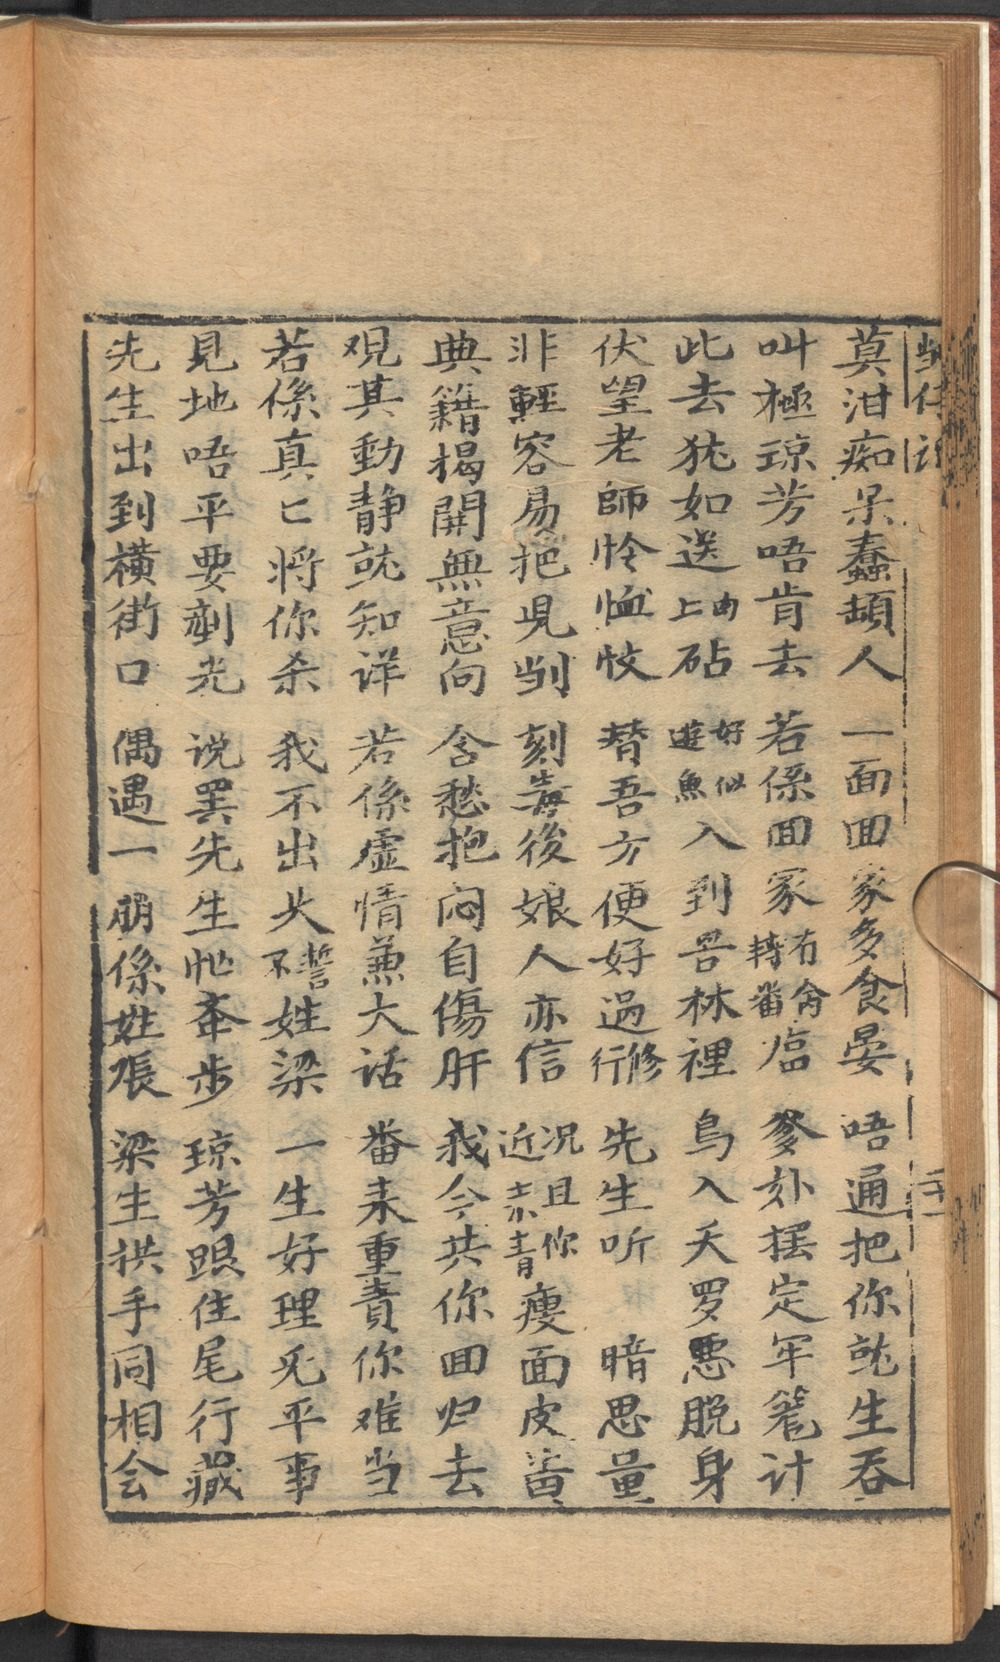 莫泔痴呆蠢頑人 一面回家多食晏 唔通把你就生吞
叫極琼芳唔肯去 若係回家有命轉番 爹妳摆定牢笼计
此去犹如送肉上砧 好似遊魚入到罟林裡 鸟入天罗悪脱身
伏望老師怜恤忮 替吾方便好过修行 先生听 暗思量
非輕容易把児剬 刻毒後娘人亦信 况且你近来青瘦面皮黄
典籍揭開無意向 含愁抱闷自傷肝 我今共你回归去
观其動静就知详 若係虚情兼大话 番来重責你难当
若係真匕将你杀 我不出头誓不姓梁 一生好理旡平事
見地唔平要剷光 说罢先生忙奔步 琼芳跟住尾行藏
先生出到横街口 偶遇一朋係姓張 梁生拱手同相会
二十一